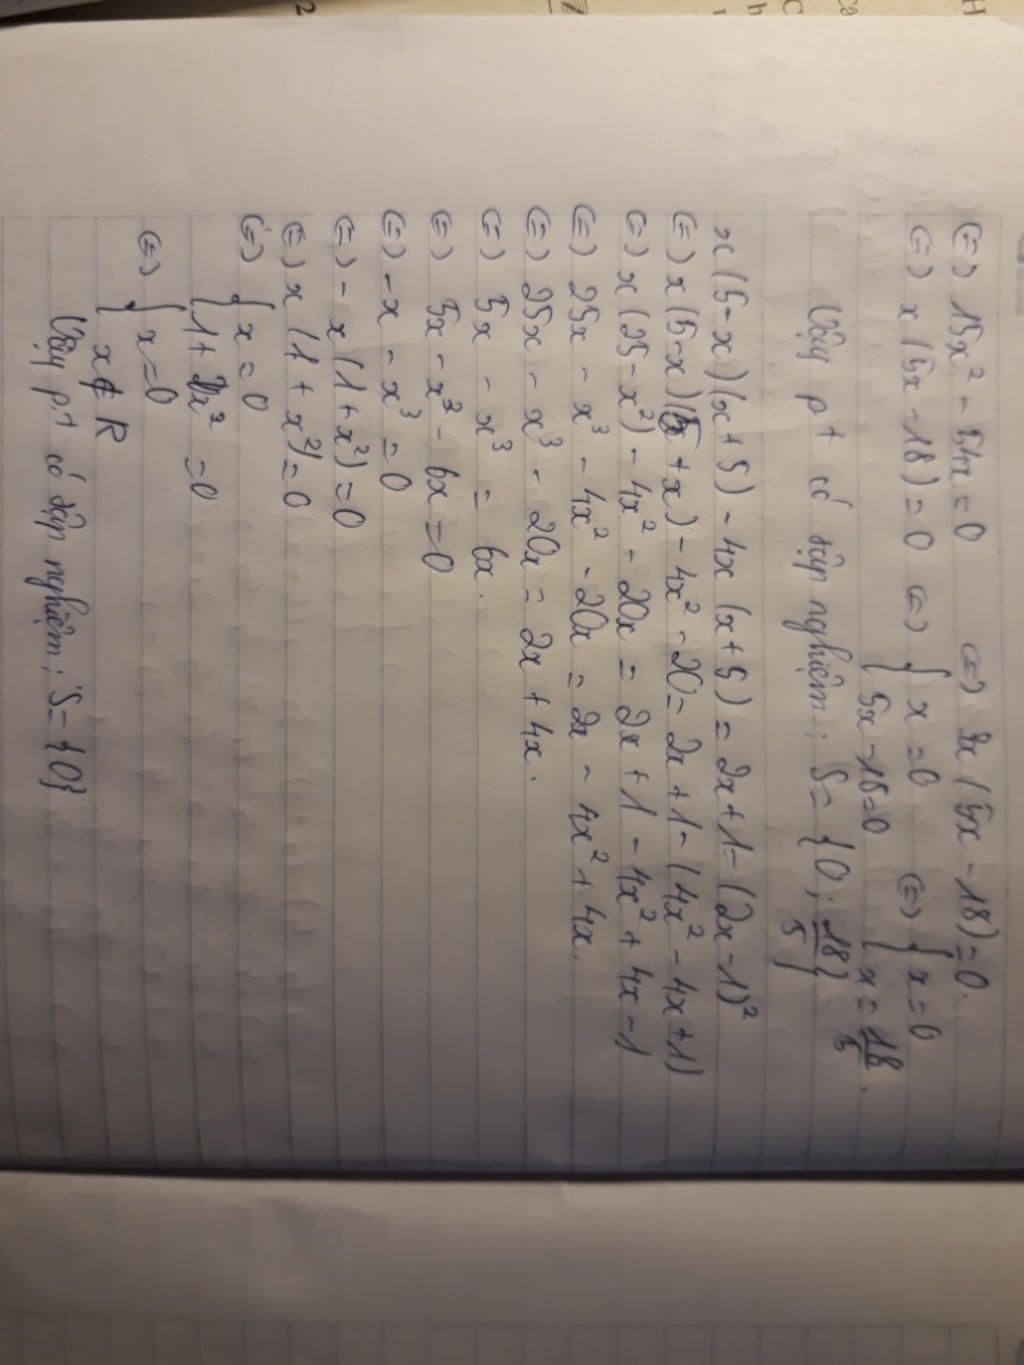 (=) 15x² - 54x = 0 (=) 3x (5x - 18) = 0.
(=) x (5x - 18) = 0 (=) { x = 0 (=) { x = 0
{ 5x - 18 = 0 { x = 18/5.
Vậy pt có tập nghiệm: S = {0; 18/5}
x (5-x)(x+5) - 4x (x+5) = 2x + 1 - (2x-1)²
(=) x (5-x)(5+x) - 4x² - 20 = 2x + 1 - (4x² - 4x + 1)
(=) x (25 - x²) - 4x² - 20x = 2x + 1 - 4x² + 4x - 1
(=) 25x - x³ - 4x² - 20x = 2x - 4x² + 4x.
(=) 25x - x³ - 20x = 2x + 4x.
(=) 5x - x³ = 6x.
(=) 5x - x³ - 6x = 0
(=) -x - x³ = 0
(=) - x (1 + x²) = 0
(=) x (1 + x²) = 0
(=) { x = 0
{ 1 + x² = 0
(=) { x = 0
{ x ∉ R
Vậy p.t có tập nghiệm: S = {0}